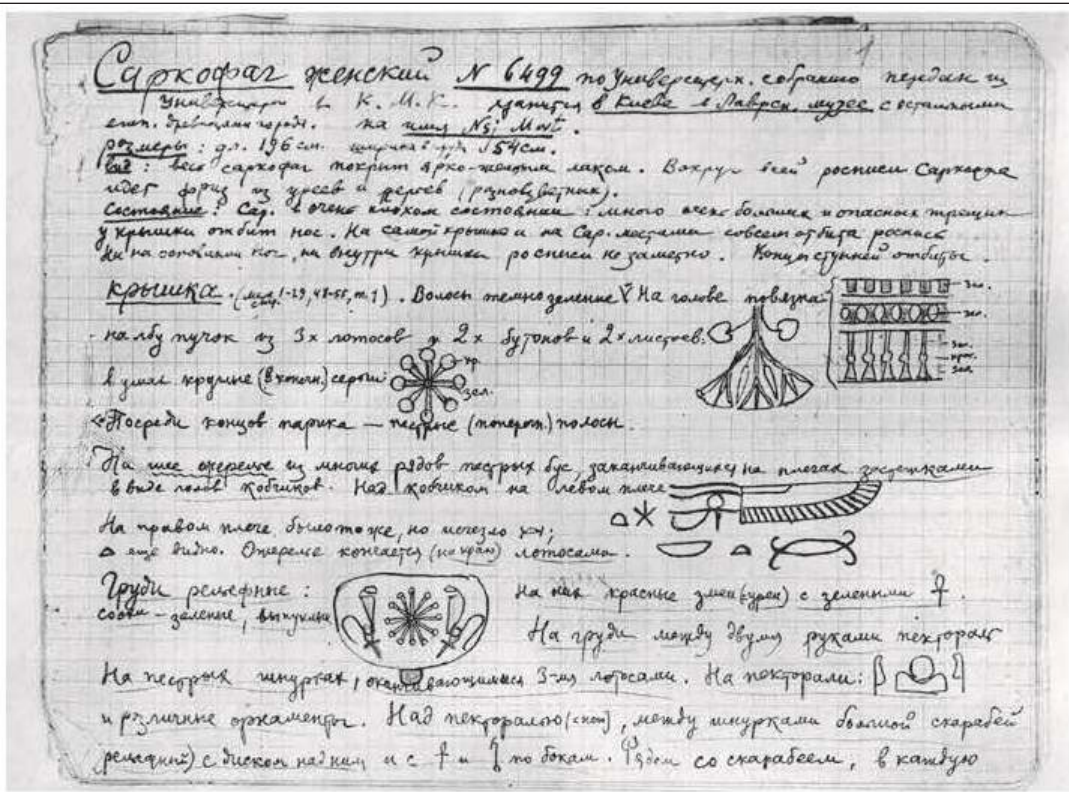 1
Саркофаг женский N 6499 по Университ. собранию передан из
Университета в К. М. К. хранится в Киеве в Лаврск. музее с остальными
егип. древностями города. на имя Nsj Mwt.
размеры: дл. 196 см. ширина в 54 см.
вид: весь саркофаг покрыт ярко-желтым лаком. Вокруг всей росписи Саркофага
идет фриз из уреев и перьев (разноцветных).
Состояние: Сар. в очень плохом состоянии: много очень больших и опасных трещин
у крышки отбит нос. На самой крышке и на Сар. местами совсем отбита роспись
Ни на основании ног, ни внутри крышки росписи не заметно. Концы ступней отбиты.
крышка. (стр. 1-29, 48-55, т. 1). Волосы темнозеленые V На голове повязка
зел.
зел.
на лбу пучок из 3х лотосов и 2х бутонов и 2х листьев.
зел.
крас.
зел.
в ушах круглые (в конечн.) серьги:
кр.
зел.
Посреди концов парика — пестрые (попереч.) полосы.
На шее ожерелье из многих рядов пестрых бус, заканчивающихся на плечах застежками
в виде голов кобчиков. Над кобчиком на левом плече
На правом плече было тоже, но исчезло
еще видно. Ожерелье кончается (на краю) лотосами.
Груди рельефные:
соски — зеленые, выпуклые
На них красные змеи (уреи) с зелеными
На груди между двумя руками пектораль
На пестрых шнурках, оканчивающимися 3-мя лотосами. На пекторали:
и различные орнаменты. Над пекторалью, между шнурками большой скарабей
рельефный) с диском над ним и с и по бокам. Рядом со скарабеем, в каждую